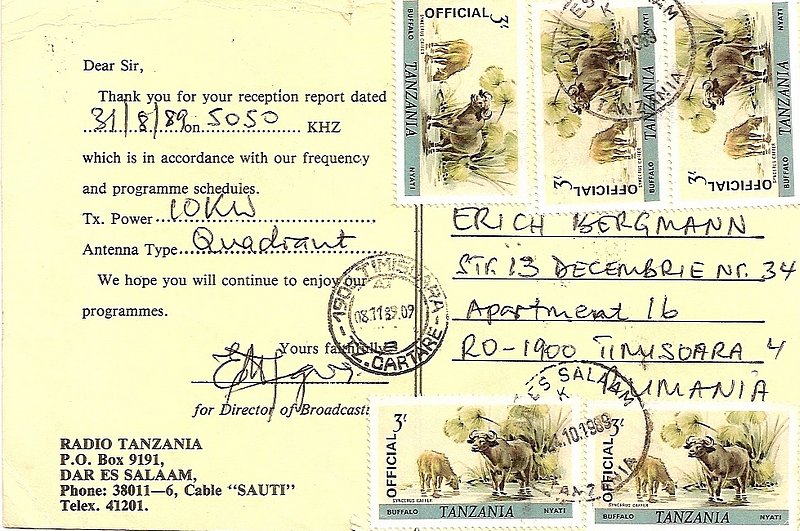 Dear Sir,
Thank you for your reception report dated
31/8/89 on 5050 KHZ
which is in accordance with our frequency
and programme schedules.
Tx. Power 10KW
Antenna Type Quadrant
We hope you will continue to enjoy our
programmes.
Yours faithfully
for Director of Broadcasti
RADIO TANZANIA
P.O. Box 9191,
DAR ES SALAAM,
Phone: 38011—6, Cable “SAUTI”
Telex. 41201.
OFFICIAL 3/-
BUFFALO TANZANIA NYATI
SYNCERUS CAFFER
OFFICIAL 3/-
BUFFALO TANZANIA NYATI
SYNCERUS CAFFER
OFFICIAL 3/-
BUFFALO TANZANIA NYATI
SYNCERUS CAFFER
DAR ES SALAAM
K
1989
TANZANIA
ERICH BERGMANN
STR. 13 DECEMBRIE NR. 34
Apartment 16
RO-1900 TIMISOARA 4
RUMANIA
1900 TIMISOARA
08.11.89.09
CARTARE
ES SALAAM
K
.10.1989
ANZANIA
OFFICIAL 3/-
SYNCERUS CAFFER
BUFFALO TANZANIA NYATI
OFFICIAL 3/-
SYNCERUS CAFFER
BUFFALO TANZANIA NYATI